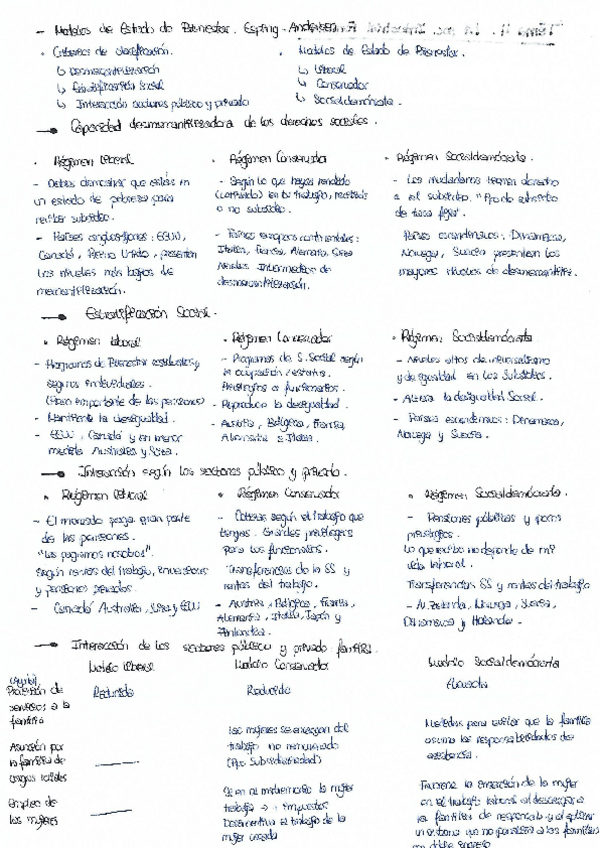 - Modelos de Estado de Bienestar. Esping-Andersen
• Criterios de clasificación.
↳ Desmercantilización
↳ Estratificación Social
↳ Interacción sectores público y privado
• Modelos de Estado de Bienestar.
↳ Liberal
↳ Conservador
↳ Socialdemócrata.
→ Capacidad desmercantilizadora de los derechos sociales.
• Régimen Liberal
- Debes demostrar que estás en
un estado de pobreza para
recibir subsidio.
- Países anglosajones: EEUU,
Canadá, Reino Unido, presentan
los niveles más bajos de
mercantilización.
• Régimen Conservador
- Según lo que hayas rendido
(cotizado) en tu trabajo, recibirás
o no subsidio.
- Países europeos continentales:
Italia, Francia, Alemania, Suiza
Niveles Intermedios de
desmercantilización.
• Régimen Socialdemócrata.
- Los ciudadanos tienen derecho
a el subsidio.
Países escandinavos: Dinamarca,
Noruega, Suecia presentan los
mayores niveles de desmercantiliz.
→ Estratificación Social.
• Régimen liberal
- Programas de Bienestar asistenciales y
seguros individuales.
(Peso importante de las pensiones)
- Mantiene la desigualdad.
- EEUU, Canadá y en menor
medida Australia y Suiza.
• Régimen Conservador
- Programas de S. Social según
la ocupación / estatus.
Privilegios a funcionarios.
- Reproduce la desigualdad.
- Austria, Bélgica, Francia,
Alemania e Italia.
• Régimen Socialdemócrata
- Niveles altos de universalismo
y de igualdad en los Subsidios.
- Altera la desigualdad Social.
- Países escandinavos: Dinamarca,
Noruega y Suecia.
→ Interacción según los sectores público y privado.
• Régimen liberal
- El mercado paga gran parte
de las pensiones.
Según rentas del trabajo, inversiones
y pensiones privadas
- Canadá Australia, Suiza y EEUU
• Régimen Conservador
- Cotizas según el trabajo que
tengas. Grandes privilegios
para los funcionarios.
Transferencias de la SS y
rentas del trabajo.
- Austria, Bélgica, Francia,
Alemania, Italia, Japón y
Finlandia.
• Régimen Socialdemócrata.
- Pensiones públicas y pocos
privilegios.
Lo que recibo no depende de mi
vida laboral.
Transferencias SS y rentas del trabajo
- N. Zelanda, Noruega, Suecia,
Dinamarca y Holanda.
→ Interacción de los sectores público y privado familia.
Modelo liberal
Modelo Conservador
Modelo Socialdemócrata
Provisión de
servicios a la
familia
Reducida
Reducida
Elevada
Asunción por
la familia de
cargas sociales
Las mujeres se encargan del
trabajo no remunerado
(Ppo Subsidiariedad)
Medidas para evitar que la familia
asuma las responsabilidades de
asistencia.
Empleo de
las mujeres
Si en el matrimonio la mujer
trabaja → impuestos
Desincentiva el trabajo de la
mujer casada